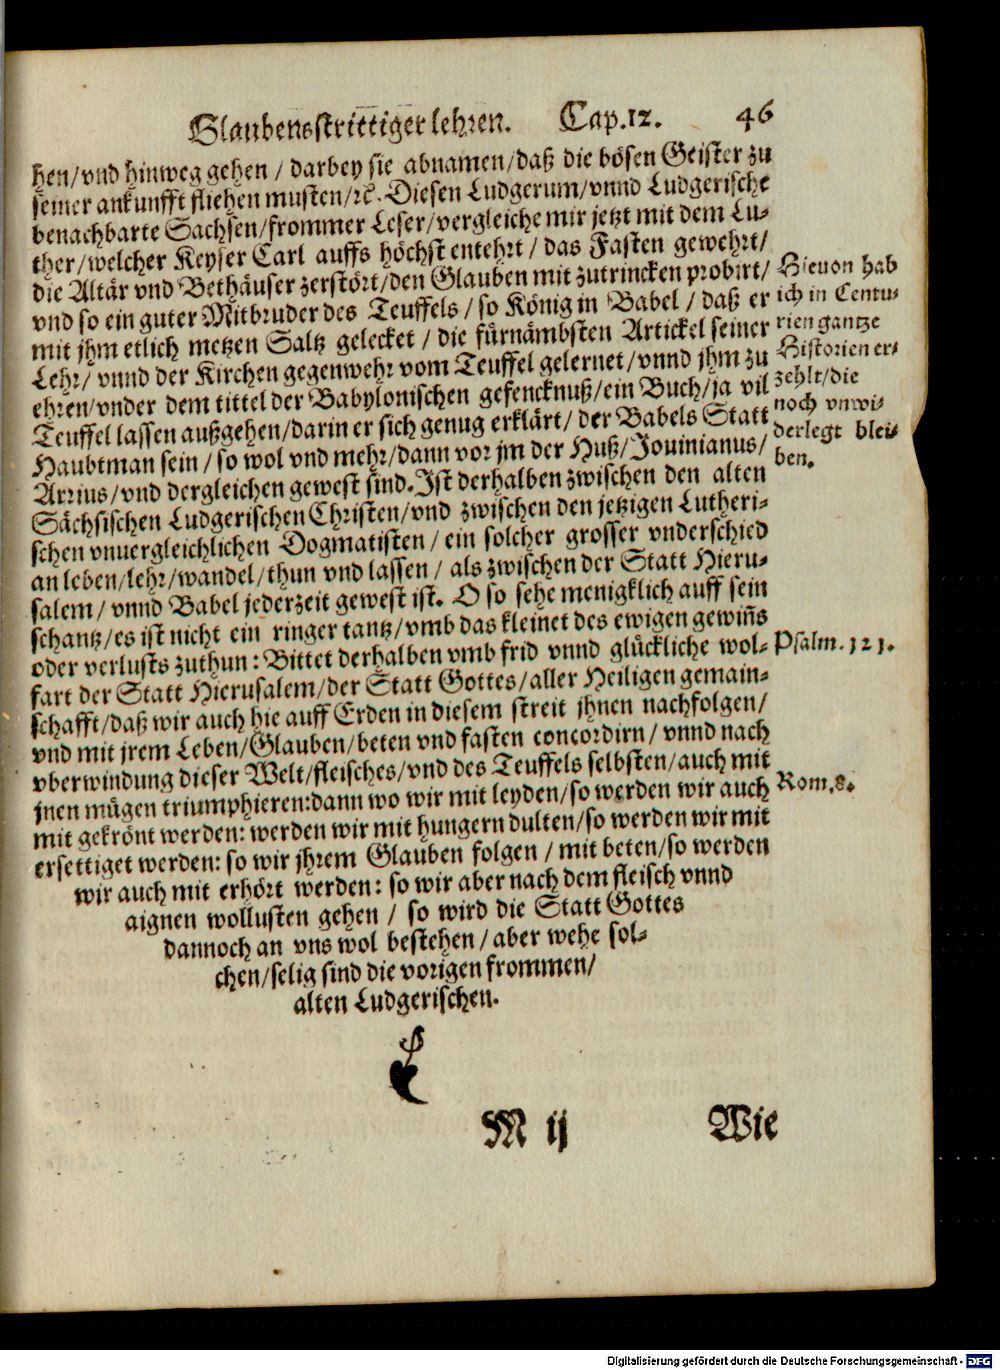 Glaubensstrittiger lehren. Cap.12. 46
hen/vnd hinweg gehen / darbey sie abnamen/daß die bösen Geister zu
seiner ankunfft fliehen musten/ꝛc. Diesen Ludgerum/vnnd Ludgerische
benachbarte Sachsen/frommer Leser/vergleiche mir jetzt mit dem Lu-
ther/welcher Keyser Carl auffs höchst entehrt / das Fasten gewehrt/
die Altär vnd Bethäuser zerstört/den Glauben mit zutrincken probirt/
vnd so ein guter Mitbruder des Teuffels / so König in Babel / daß er
mit jhm etlich metzen Saltz gelecket / die fürnämbsten Artickel seiner
Lehr/ vnnd der Kirchen gegenwehr vom Teuffel gelernet/vnnd jhm zu
ehren/vnder dem tittel der Babylonischen gefencknuß/ein Buch/ja vil
Teuffel lassen außgehen/darin er sich genug erklärt/ der Babels Statt
Haubtman sein / so wol vnd mehr/dann vor jm der Huß/Jouinianus/
Arrius/vnd dergleichen gewest sind. Ist derhalben zwischen den alten
Sächsischen Ludgerischen Christen/vnd zwischen den jetzigen Lutheri-
schen vnuergleichlichen Dogmatisten / ein solcher grosser vnderschied
an leben/lehr/wandel/thun vnd lassen / als zwischen der Statt Hieru-
salem / vnnd Babel jederzeit gewest ist. O so sehe menigklich auff sein
schantz/es ist nicht ein ringer tantz/vmb das kleinet des ewigen gewiñs
oder verlusts zuthun: Bittet derhalben vmb frid vnnd glückliche wol-
fart der Statt Hierusalem/der Statt Gottes/aller Heiligen gemain-
schafft/daß wir auch hie auff Erden in diesem streit jhnen nachfolgen/
vnd mit jrem Leben/Glauben/beten vnd fasten concordirn / vnnd nach
vberwindung dieser Welt/fleisches/vnd des Teuffels selbsten/auch mit
jnen mügen triumphieren:dann wo wir mit leyden/so werden wir auch
mit gekrönt werden: werden wir mit hungern dulten/so werden wir mit
ersettiget werden: so wir jhrem Glauben folgen / mit beten/so werden
wir auch mit erhört werden: so wir aber nach dem fleisch vnnd
aignen wollusten gehen / so wird die Statt Gottes
dannoch an vns wol bestehen / aber wehe sol-
chen/selig sind die vorigen frommen/
alten Ludgerischen.
Hieuon hab
ich in Centu-
rien gantze
Historien er-
zehlt/die
noch vnwi-
derlegt blei-
ben.
Psalm. 121.
Rom.8.
M ij Wie
Digitalisierung gefördert durch die Deutsche Forschungsgemeinschaft - DFG